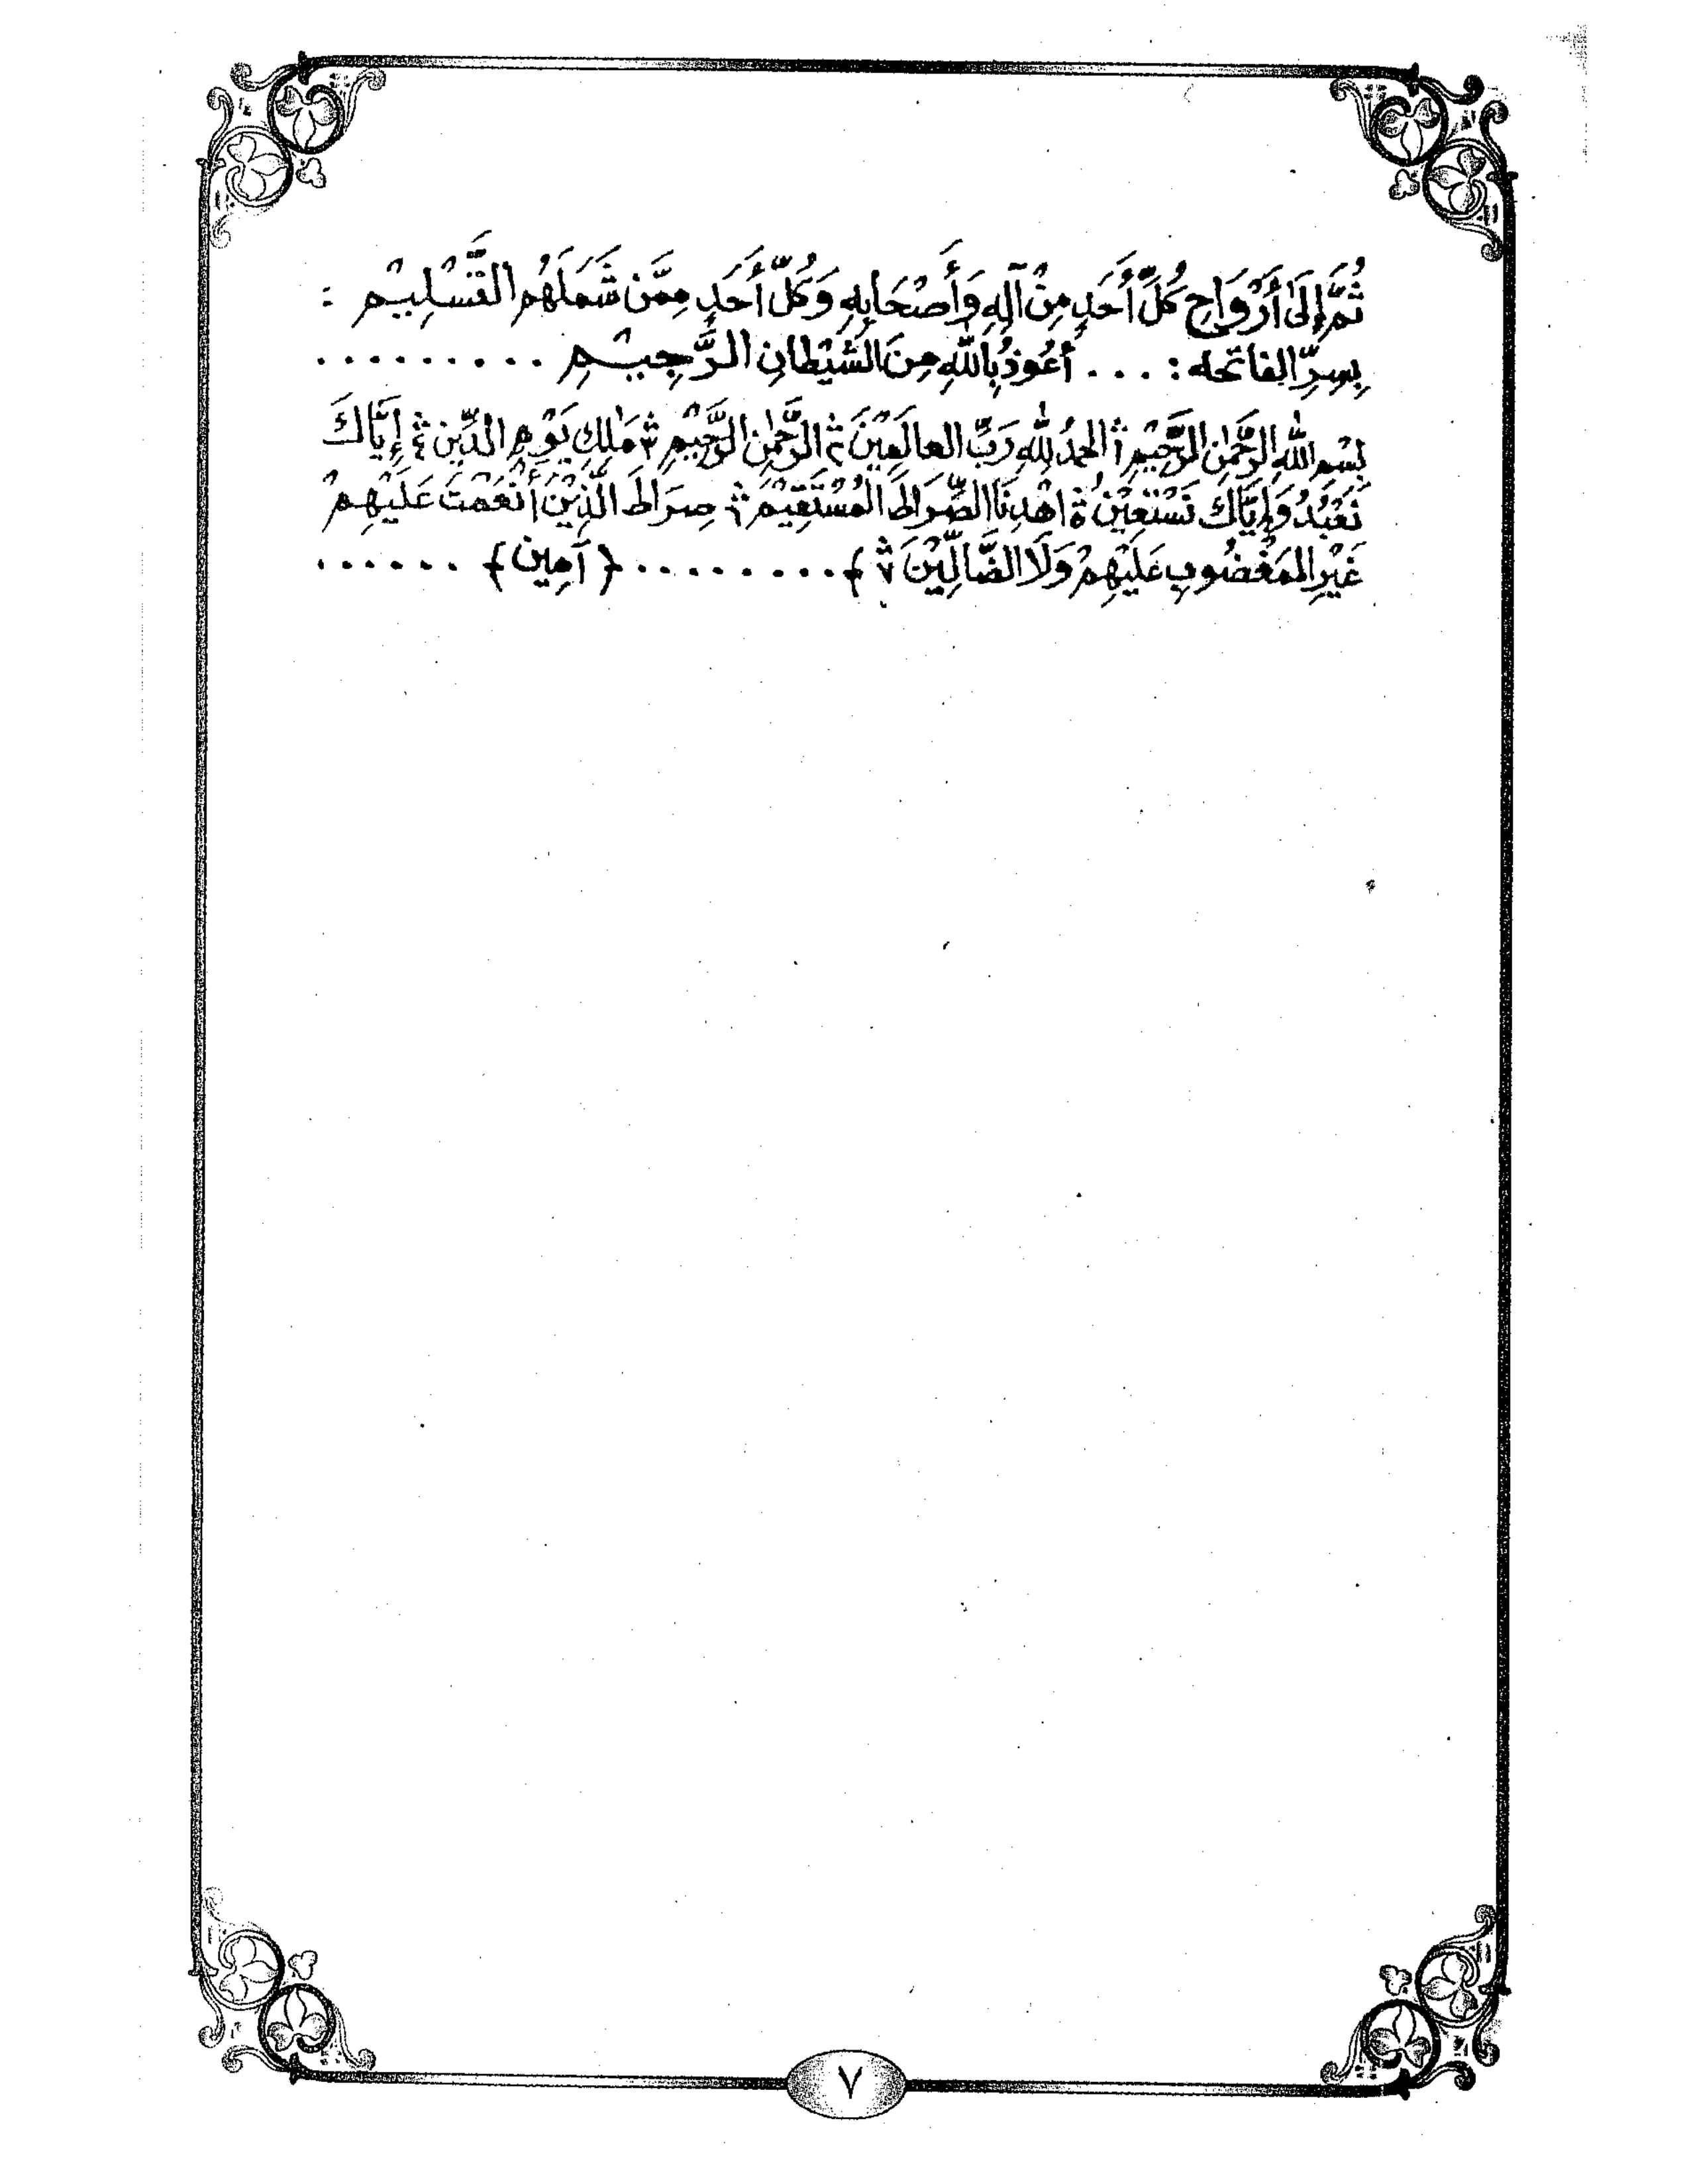 ثُمَّ إِلَىٰ أَرْوَاحِ كُلِّ أَحَدٍ مِنْ آلِهِ وَأَصْحَابِهِ وَكُلِّ أَحَدٍ مِمَّن شَمَلَهُم التَّسْلِيْم :
بِسِرِّ الفاتحه : . . . أَعُوذُ بِاللهِ مِنَ الشَّيْطَانِ الرَّجِيْمِ . . . . . . . . .
بِسْمِ اللهِ الرَّحْمٰنِ الرَّحِيْمِ ١ الحمدُ لِلّٰهِ رَبِّ العالَمِيْنَ ٢ الرَّحْمٰنِ الرَّحِيْمِ ٣ مَالِكِ يَوْمِ الدِّينِ ٤ إِيَّاكَ
نَعْبُدُ وَإِيَّاكَ نَسْتَعِيْنُ ٥ اهْدِنَا الصِّرَاطَ الْمُسْتَقِيْمَ ٦ صِرَاطَ الَّذِيْنَ أَنْعَمْتَ عَلَيْهِمْ
غَيْرِ المَغْضُوبِ عَلَيْهِمْ وَلَا الضَّالِّيْنَ ٧ ﴾ . . . . . . . . . ﴿ آمِين ﴾ . . . . . .
٧